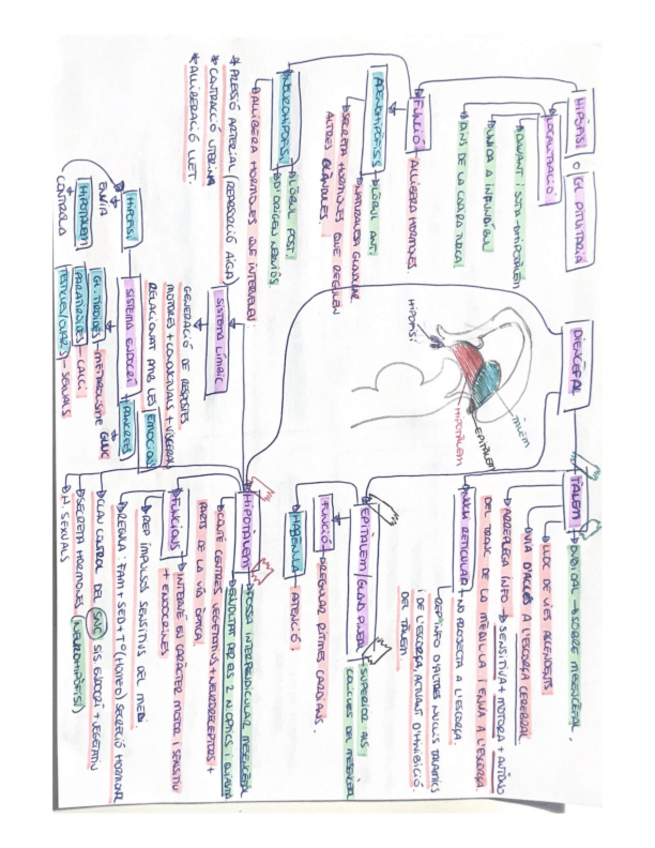 DIENCÈFAL
HIPÒFISI O GL PITUITÀRIA
LOCALITZACIÓ
DAVANT I SOTA → HIPOTÀLEM
UNIDA A INFUNDÍBUL
DINS DE LA CADIRA TURCA
FUNCIÓ
ALLIBERA HORMONES
ADENOHIPÒFISIS
LÒBUL ANT.
NATURALESA GLANDULAR
SECRETA HORMONES QUE REGULEN
ALTRES GLÀNDULES.
NEUROHIPÒFISI
LÒBUL POST.
D'ORIGEN NERVIÓS
ALLIBERA HORMONES QUE INTERVENEN:
* PRESSIÓ ARTERIAL (REABSORCIÓ AIGA)
* CONTRACCIÓ UTERINA
* ALLIBERACIÓ LLET.
HIPÒFISI
TÀLEM
EPITÀLEM
HIPOTÀLEM
TÀLEM
OVOIDAL → SOBRE MESENCÈFAL.
LLOC DE VIES ASCENDENTS
VIA D'ACCÉS A L'ESCORÇA CEREBRAL
ARREPLEGA INFO → SENSITIVA + MOTORA +
DEL TRONC DE LA MÈDUL·LA I ENVIA A L'ESCORÇA
NUCLI RETICULAR
NO PROJECTA A L'ESCORÇA
REP INFO D'ALTRES NUCLIS TALÀMICS
I DE L'ESCORÇA, ACTUANT D'INHIBICIÓ
DEL TÀLEM.
EPITÀLEM/GLAND PINEAL
SUPERIOR ALS
COL·LICLES DE MESENCÈFAL
FUNCIÓ
REGULAR RITMES CARDIANS.
HABÈNULA
ATENCIÓ.
HIPOTÀLEM
FOSSA INTERPEDUNCULAR MESENCÈFAL
ENVOLTAT PER ELS 2 N ÒPTICS I QUIASMA
CONTÉ CENTRES VEGETATIUS + NEURORECEPTORS +
PARTS DE LA VIA ÒPTICA
FUNCIONS
INTERVÉ EN CARÀCTER MOTOR I SENSITIU
+ ENDOCRINES
REP IMPULSOS SENSITIUS DEL MEDI
REGULA: FAM + SED + Tº (HOMEO) SECRECIÓ HORMONAL
CLAU CONTROL DEL SNC SIS ENDOCRÍ + VEGETATIU
SECRETA HORMONES (NEUROHIPÒFISI)
H. SEXUALS
SISTEMA LÍMBIC
GENERACIÓ DE RESPOSTES
MOTORES + CONDUCTUALS + VISCERALS
RELACIONAT AMB LES EMOCIONS
SISTEMA ENDOCRÍ
PÀNCREES
GLUC
GL. TIROIDES - METABOLISME
PARATIROIDES - CALCI
TESTICLES/OVARIS - SEXUALS
HIPÒFISI
ENVIA
HIPOTÀLEM
CONTROLA